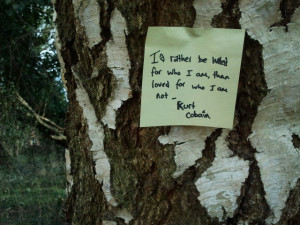 I'd rather be hated
for who I am, than
loved for who I am
not -
Kurt
Cobain